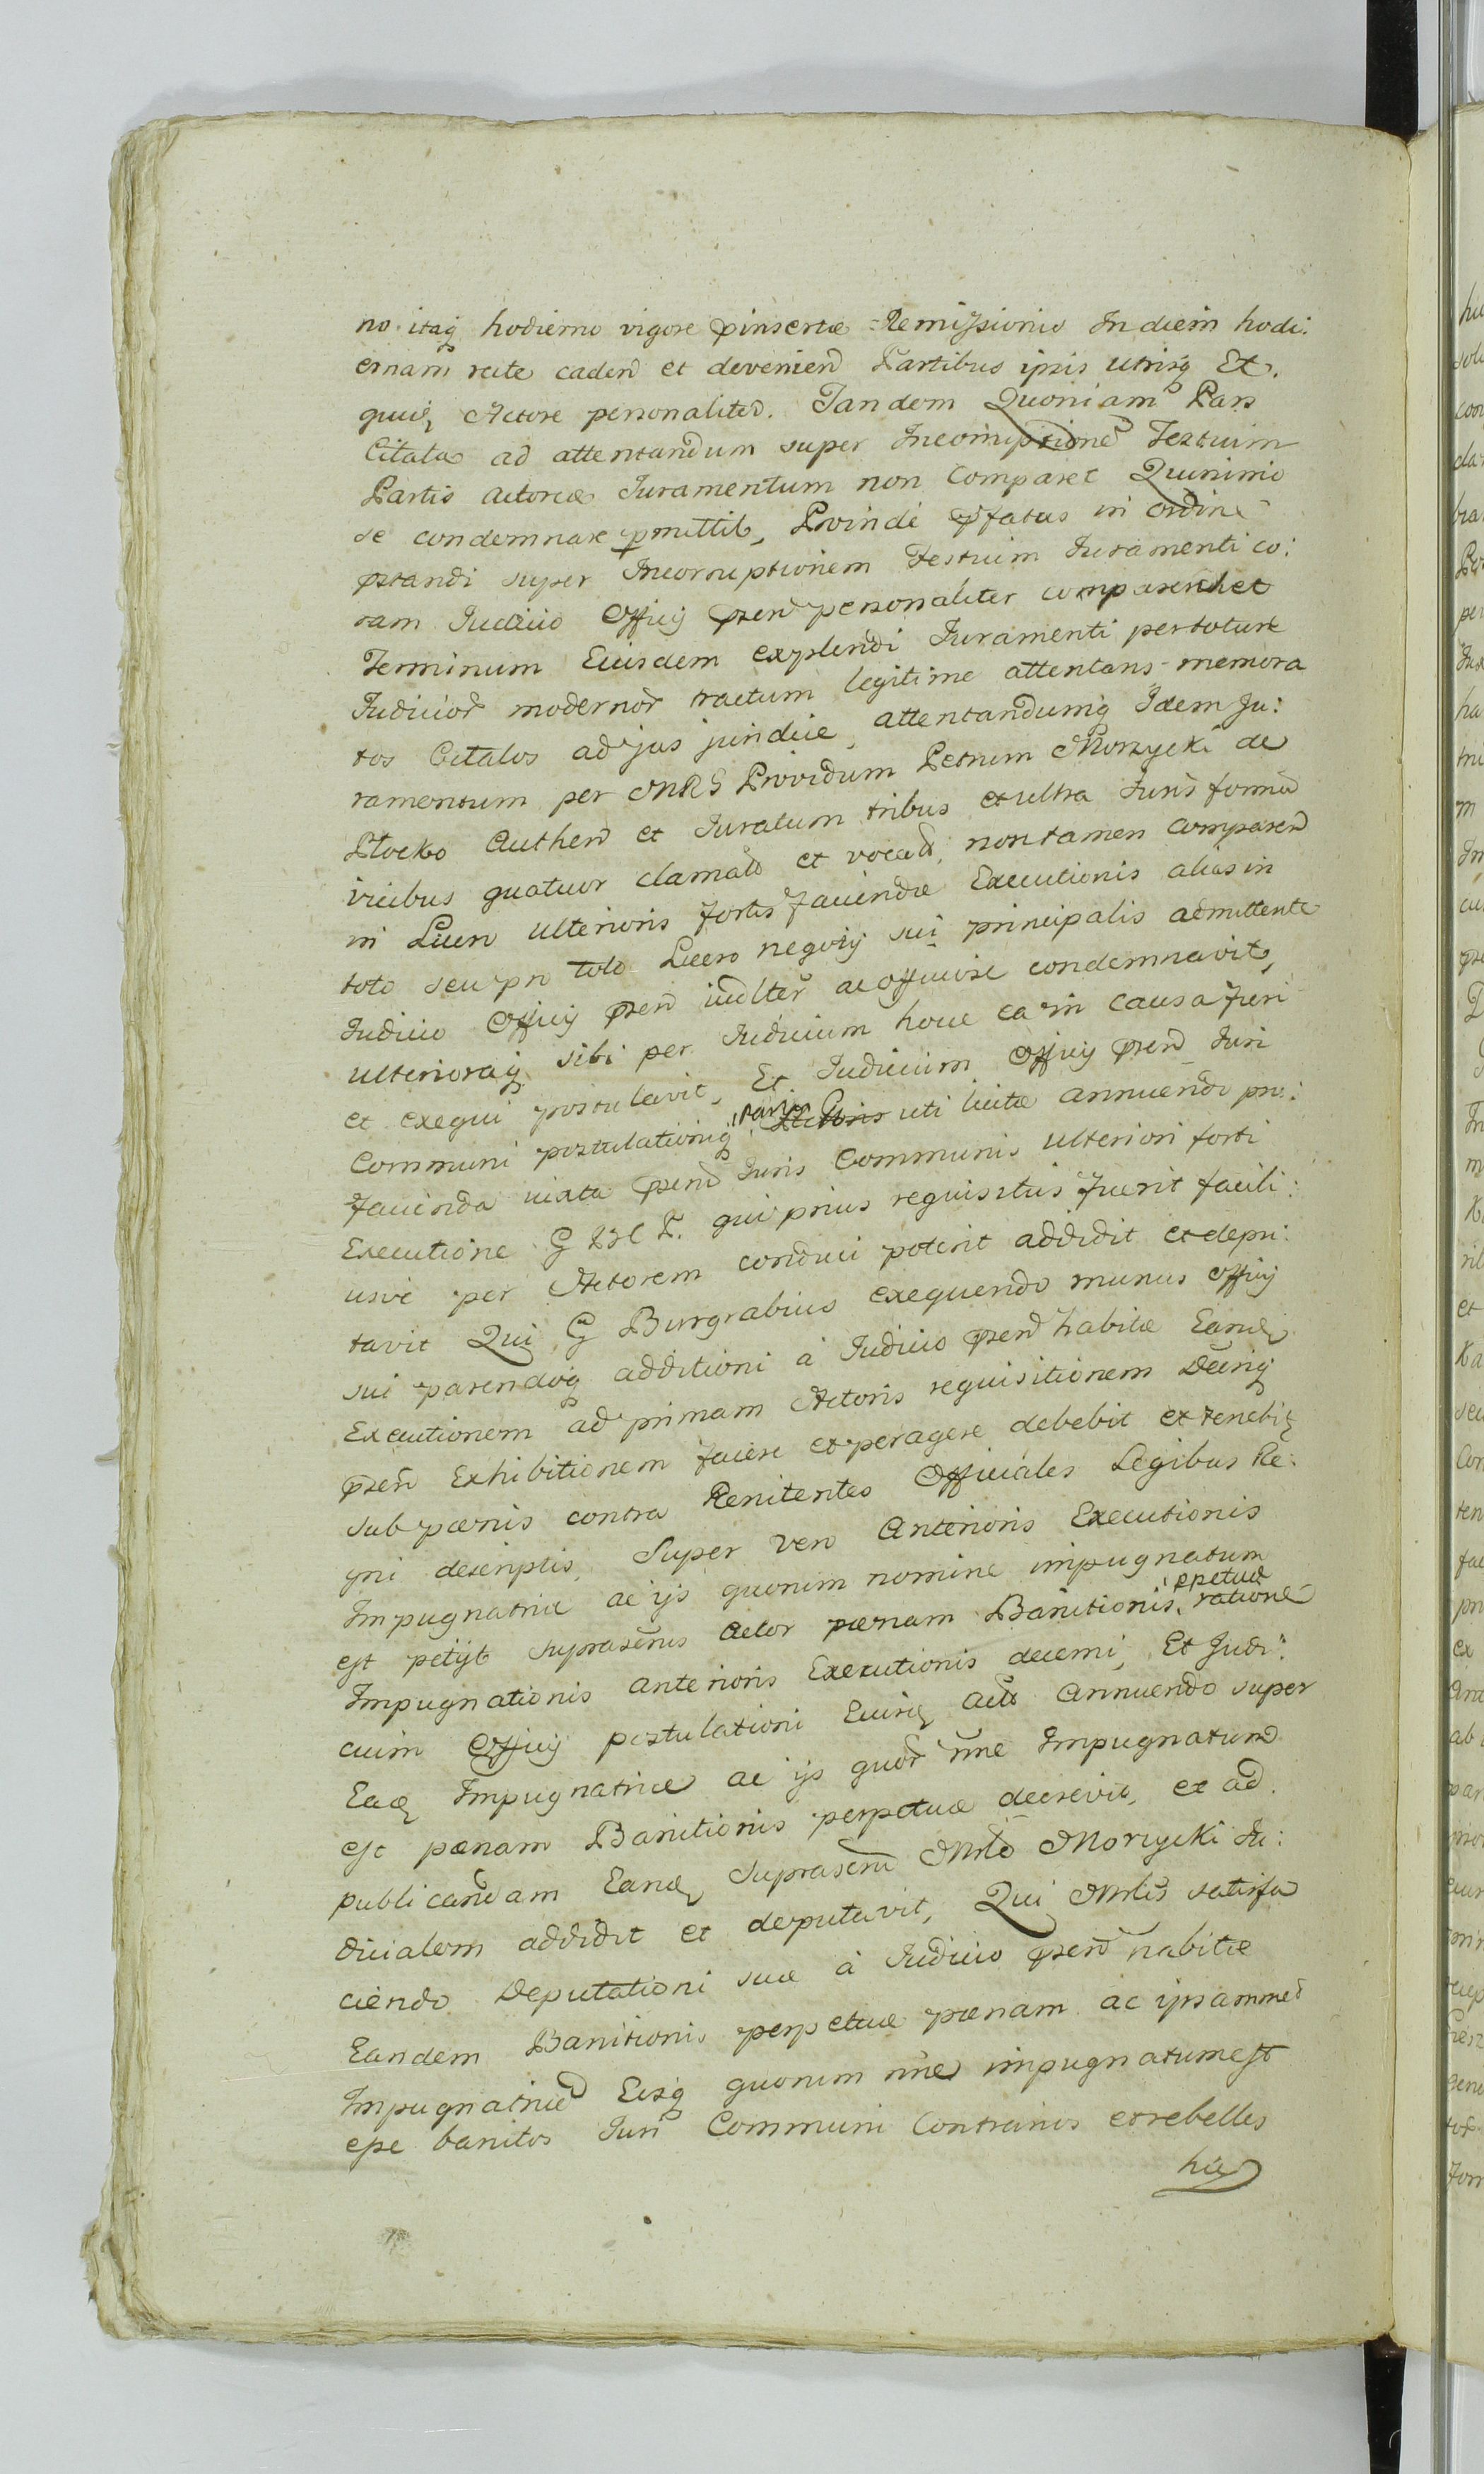 no itaq hodierno vigore pinsertæ Remissionis In diem hodi:
ernam recte caden et devenien Partibus ipsis utrisq Et.
quidem Actore personaliter. Tandem Quoniam Pars
Citata ad attentandum super Incorruptione Testium
Partis actoreæ Iuramentum non Comparet Quinimo
se condemnare pmittit, Proinde pfatus in ordine
pstandi super Incorruptionem Testium Iuramenti co:
ram Iudicio Officij psen personaliter comparen et
Terminum Eiusdem explendi Iuramenti per totum
Iudicior modernor tractum legitime attentans memora
tos Citatos ad jus juridice, attentandumq Idem Ju:
ramentum per MRS Providum Petrum Morzycki de
Płocko Authen et Iuratum tribus et ultra Iuris forma
vicibus quatuor clamatos et vocatos, non tamen comparen
in Lucro ulterioris fortis faciendæ Executionis alias in
toto seu pro toto Lucro negotij sui principalis admittente
Iudicio Officij psen iudlter ac officiose condemnavit,
ulterioraq sibi per Iudicium hocce ea in causa fieri
et exequi postulavit, Et Iudicium Officij psen Iuri
Communi postulationiq Partis Actoris uti licitæ annuendo pro:
facienda iuxta psens Iuris Communis ulteriori forti
Executione G B C P. qui prius requisitus fuerit facili:
usve per Actorem conduci poterit addidit et depu:
tavit Qui G Burgrabius exequendo munus Officij
sui parendoq additioni à Iudicio psen habitæ Eand
Executionem ad primam Actoris requisitionem Decriq
psen Exhibitionem facere et peragere debebit et tenebit
sub pœnis contra Renitentes Officiales Legibus Re:
gni descriptis, Super vero Anterioris Executionis
Impugnatrice ac ijs quorum nomine impugnatum
est petijt suprascrius actor pœnam Banitionis ppetuæ ratione
Impugnationis anterioris Executionis decerni, Et Judi:
cium Officij postulationi Eiusd act annuendo super
Ead Impugnatrice ac ijs quor nne Impugnatum
est pœnam Banitionis perpetuæ decrevit, et ad
publicandam Eand suprascrum Mrlem Morzycki Iu:
dicialem addidit et deputavit, Qui Mrlis satisfa
ciendo Deputationi suæ à Iudicio psen habitæ
Eandem Banitionis perpetuæ pœnam ac ipsammet
Impugnatrice Eisq quorum nne impugnatum est
esse banitos Iuri Communi Contrarios et rebelles
hic